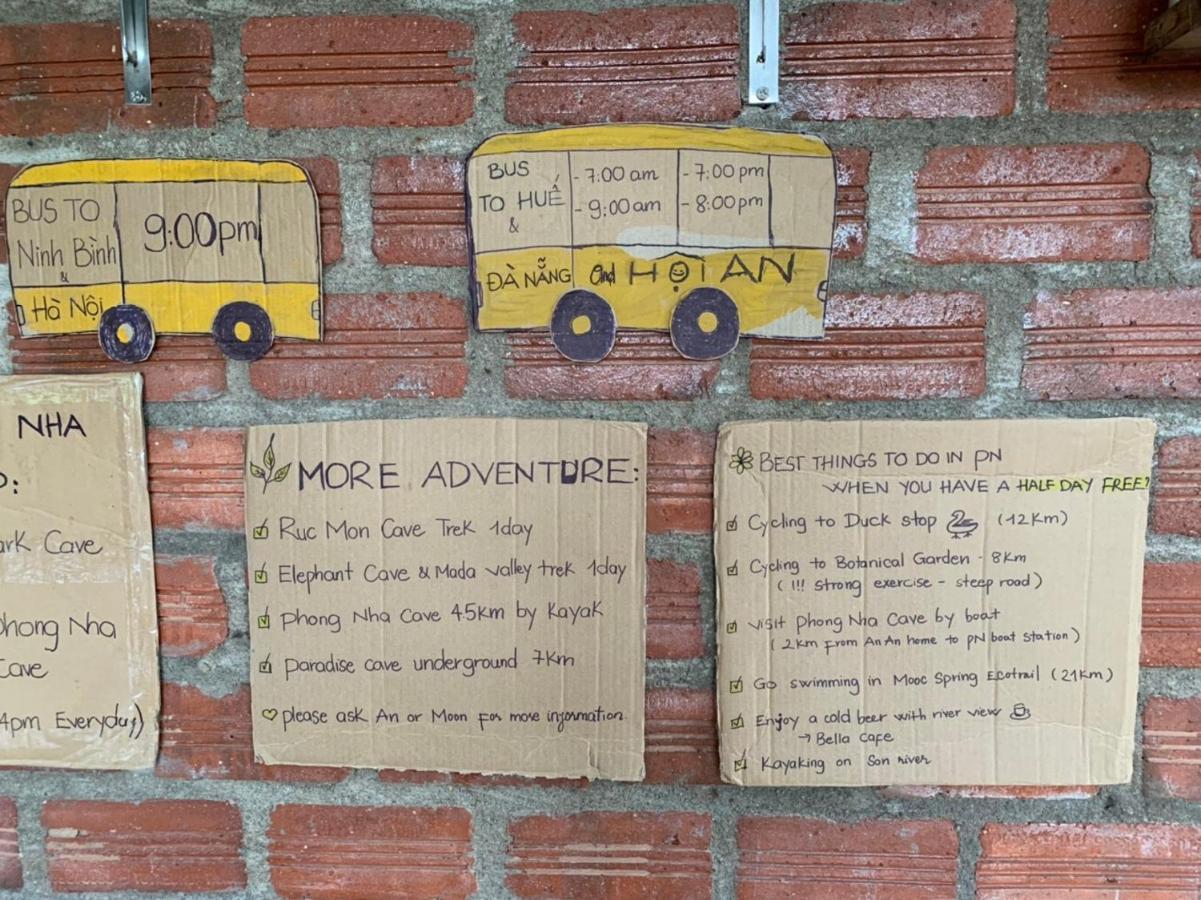 BUS TO
Ninh Bình
&
Hà Nội
9:00pm
BUS
TO HUẾ
&
ĐÀ NẴNG and HỘI AN
- 7:00 am
- 9:00 am
- 7:00 pm
- 8:00 pm
NHA
:
ark Cave
phong Nha
Cave
4pm Everyday)
MORE ADVENTURE:
Ruc Mon Cave Trek 1day
Elephant Cave & Mada valley trek 1day
Phong Nha Cave 4.5km by Kayak
paradise cave underground 7km
please ask An or Moon for more information
BEST THINGS TO DO IN PN
WHEN YOU HAVE A HALF DAY FREE?
Cycling to Duck stop (12km)
Cycling to Botanical Garden - 8km
( !!! strong exercise - steep road )
visit phong Nha Cave by boat
( 2km from An An home to pN boat station )
Go swimming in Mooc Spring Ecotrail (21km)
Enjoy a cold beer with river view
→ Bella Cafe
Kayaking on Son river